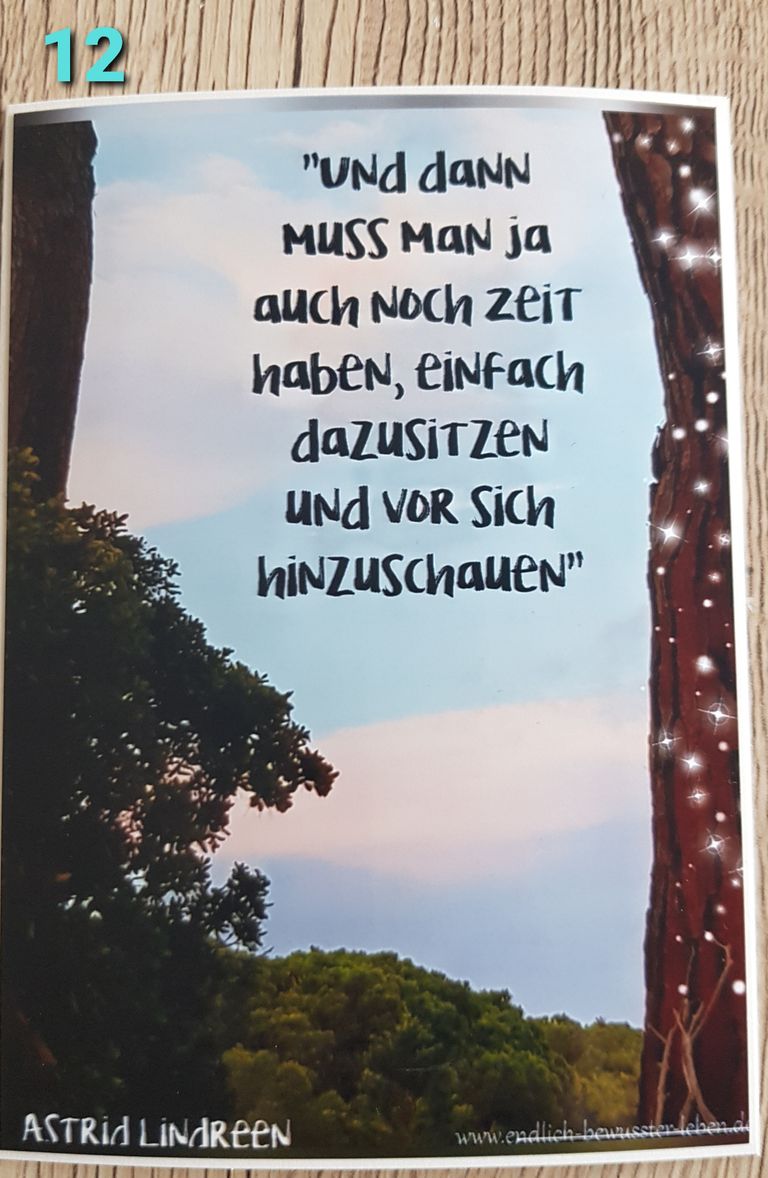 12
"UNd daNN
MUSS MaN ja
auch NOch Zeit
habeN, eiNfach
dazusitzeN
uNd vor sich
hiNzuschaueN"
ASTRid LiNdREEN
www.endlich-bewusster-leben.de